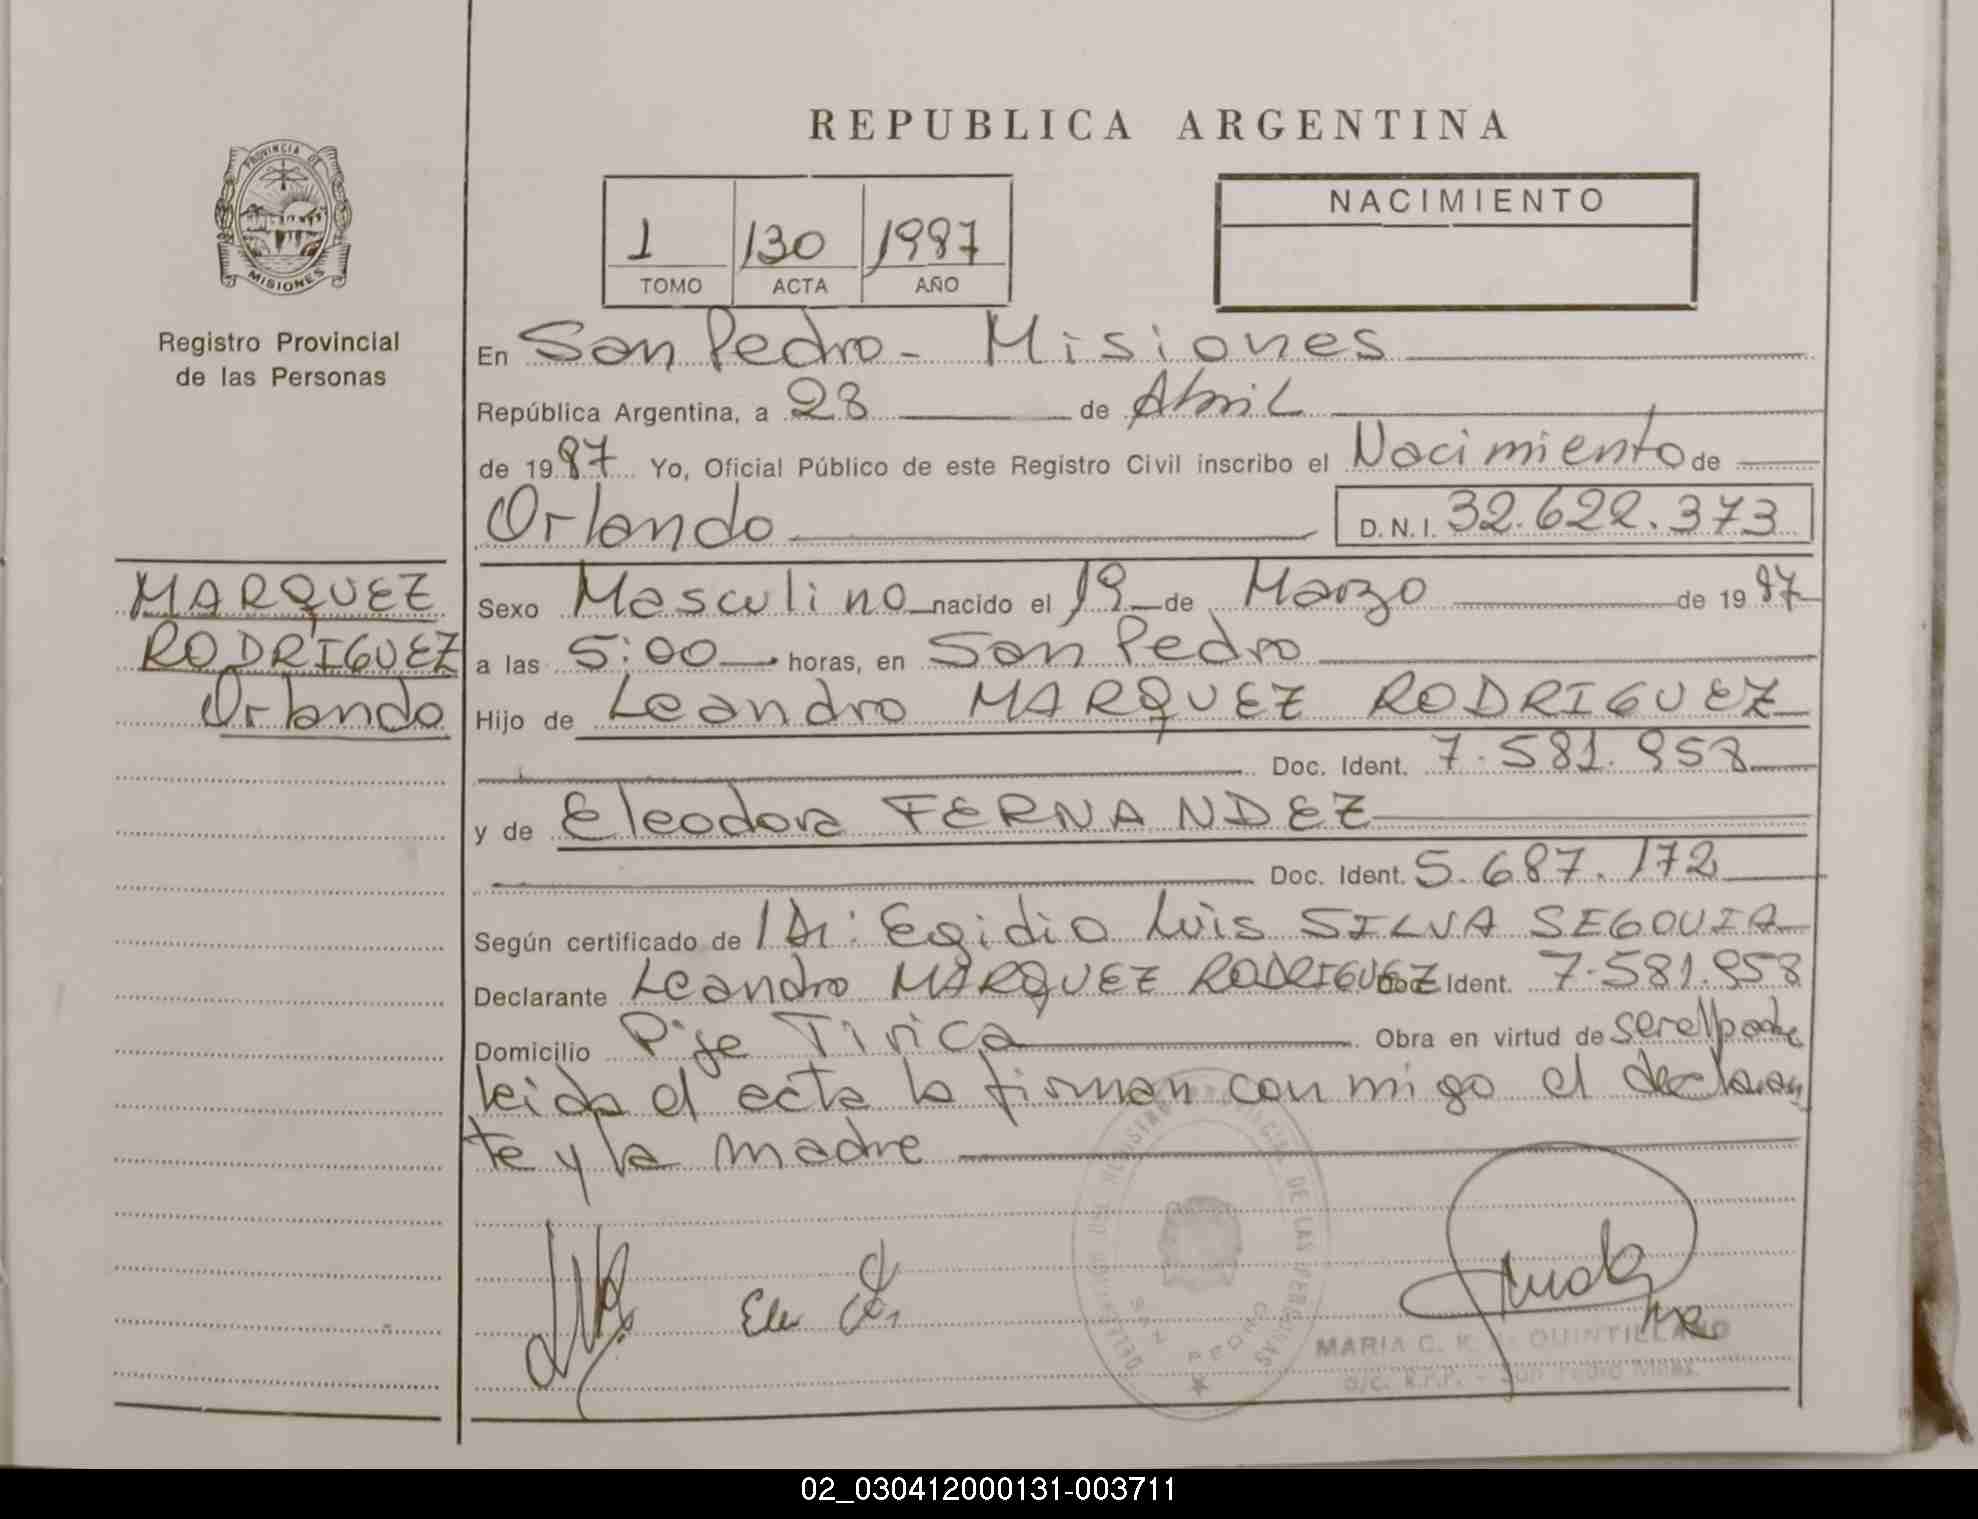 REPUBLICA ARGENTINA
PROVINCIA DE
MISIONES
Registro Provincial
de las Personas
1 130 1987
TOMO ACTA AÑO
NACIMIENTO
En San Pedro - Misiones
República Argentina, a 28 de Abril
de 1987 Yo, Oficial Público de este Registro Civil inscribo el Nacimiento de
Orlando D.N.I. 32.622.373
MARQUEZ
RODRIGUEZ
Orlando
Sexo Masculino nacido el 19 de Marzo de 1987
a las 5:00 horas, en San Pedro
Hijo de Leandro MARQUEZ RODRIGUEZ
Doc. Ident. 7.581.958
y de Eleodora FERNANDEZ
Doc. Ident. 5.687.172
Según certificado de Dr: Egidio Luis SILVA SEGOVIA
Declarante Leandro MARQUEZ RODRIGUEZ Doc. Ident. 7.581.958
Domicilio Pje Tirica Obra en virtud de ser el padre
leida el acta la firman con migo el declaran
te y la madre
DE LAS PERSONAS
SAN PEDRO
MARIA C. K. QUINTILLANO
a/c. R.P.P. - San Pedro Mnes.
02_030412000131-003711